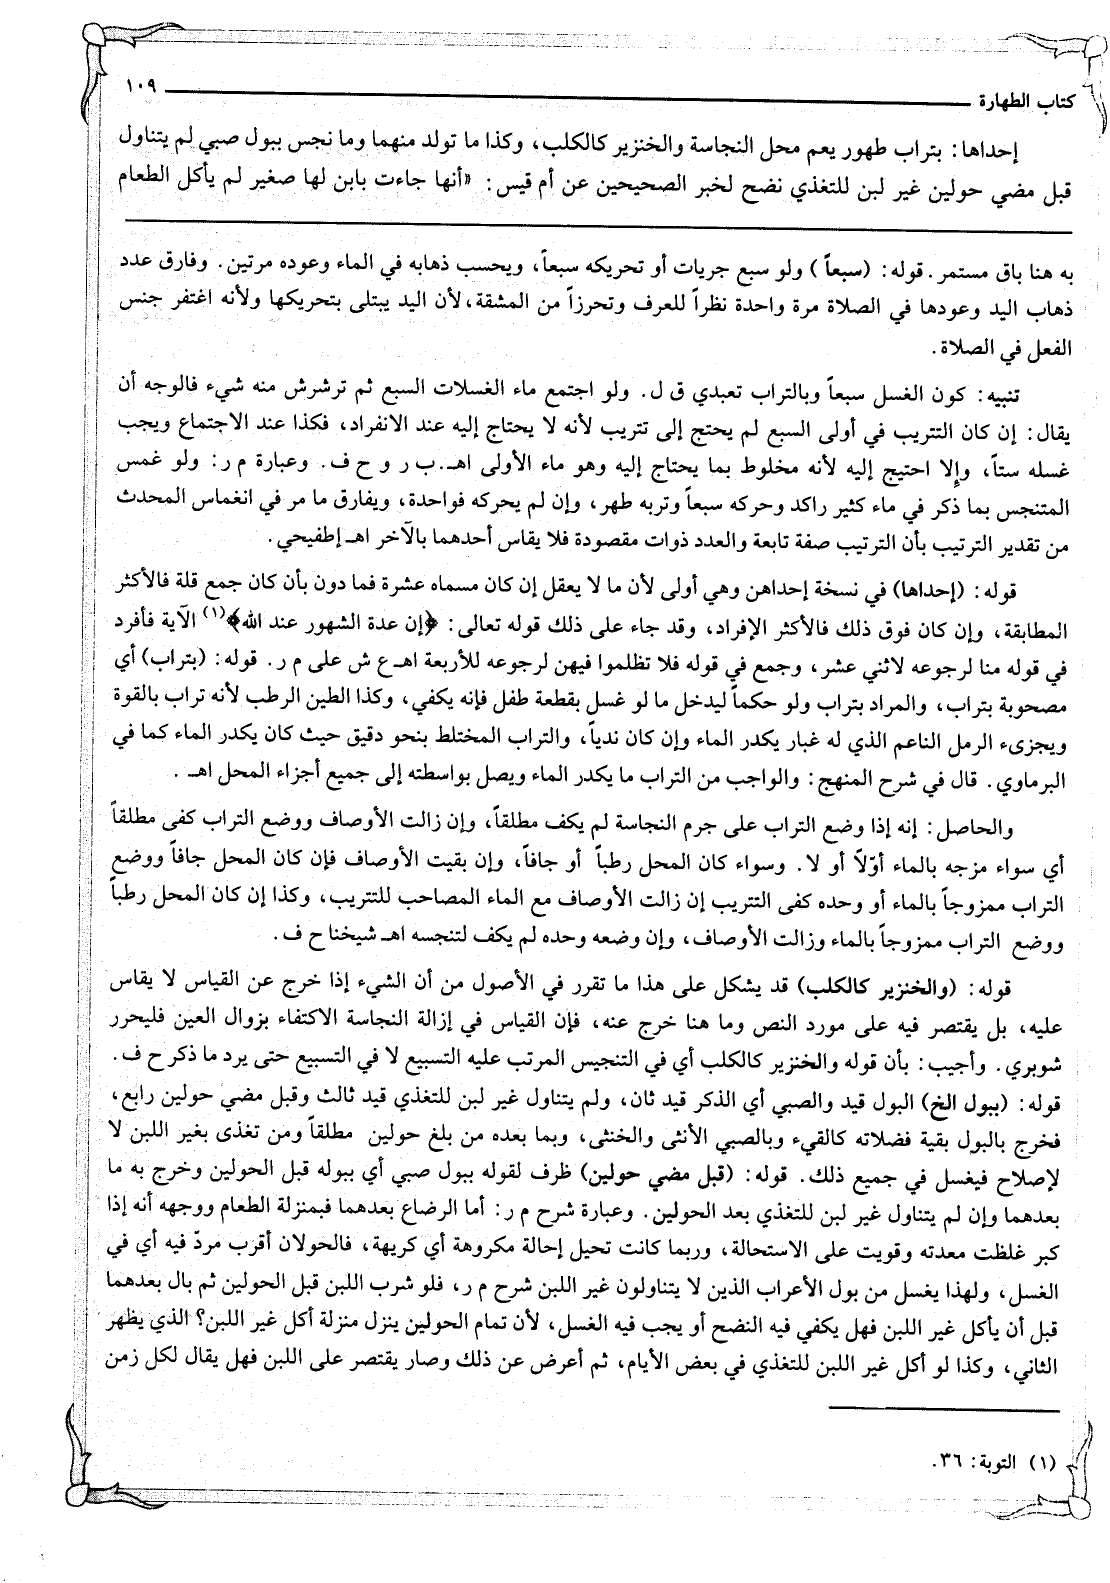 كتاب الطهارة ١٠٩
إحداها: بتراب طهور يعم محل النجاسة والخنزير كالكلب، وكذا ما تولد منهما وما نجس ببول صبي لم يتناول
قبل مضي حولين غير لبن للتغذي نضح لخبر الصحيحين عن أم قيس: «أنها جاءت بابن لها صغير لم يأكل الطعام
به هنا باق مستمر. قوله: (سبعاً) ولو سبع جريات أو تحريكه سبعاً، ويحسب ذهابه في الماء وعوده مرتين. وفارق عدد
ذهاب اليد وعودها في الصلاة مرة واحدة نظراً للعرف وتحرزاً من المشقة، لأن اليد يبتلى بتحريكها ولأنه اغتفر جنس
الفعل في الصلاة.
تنبيه: كون الغسل سبعاً وبالتراب تعبدي ق ل. ولو اجتمع ماء الغسلات السبع ثم ترشرش منه شيء فالوجه أن
يقال: إن كان التتريب في أولى السبع لم يحتج إلى تتريب لأنه لا يحتاج إليه عند الانفراد، فكذا عند الاجتماع ويجب
غسله ستاً، وإلا احتيج إليه لأنه مخلوط بما يحتاج إليه وهو ماء الأولى اهـ. ب ر و ح ف. وعبارة م ر: ولو غمس
المتنجس بما ذكر في ماء كثير راكد وحركه سبعاً وتربه طهر، وإن لم يحركه فواحدة، ويفارق ما مر في انغماس المحدث
من تقدير الترتيب بأن الترتيب صفة تابعة والعدد ذوات مقصودة فلا يقاس أحدهما بالآخر اهـ إطفيحي.
قوله: (إحداها) في نسخة إحداهن وهي أولى لأن ما لا يعقل إن كان مسماه عشرة فما دون بأن كان جمع قلة فالأكثر
المطابقة، وإن كان فوق ذلك فالأكثر الإفراد، وقد جاء على ذلك قوله تعالى: ﴿إن عدة الشهور عند الله﴾(١) الآية فأفرد
في قوله منا لرجوعه لاثني عشر، وجمع في قوله فلا تظلموا فيهن لرجوعه للأربعة اهـ ع ش على م ر. قوله: (بتراب) أي
مصحوبة بتراب، والمراد بتراب ولو حكماً ليدخل ما لو غسل بقطعة طفل فإنه يكفي، وكذا الطين الرطب لأنه تراب بالقوة
ويجزىء الرمل الناعم الذي له غبار يكدر الماء وإن كان ندياً، والتراب المختلط بنحو دقيق حيث كان يكدر الماء كما في
البرماوي. قال في شرح المنهج: والواجب من التراب ما يكدر الماء ويصل بواسطته إلى جميع أجزاء المحل اهـ .
والحاصل: إنه إذا وضع التراب على جرم النجاسة لم يكف مطلقاً، وإن زالت الأوصاف ووضع التراب كفى مطلقاً
أي سواء مزجه بالماء أوّلاً أو لا. وسواء كان المحل رطباً أو جافاً، وإن بقيت الأوصاف فإن كان المحل جافاً ووضع
التراب ممزوجاً بالماء أو وحده كفى التتريب إن زالت الأوصاف مع الماء المصاحب للتتريب، وكذا إن كان المحل رطباً
ووضع التراب ممزوجاً بالماء وزالت الأوصاف، وإن وضعه وحده لم يكف لتنجسه اهـ شيخنا ح ف.
قوله: (والخنزير كالكلب) قد يشكل على هذا ما تقرر في الأصول من أن الشيء إذا خرج عن القياس لا يقاس
عليه، بل يقتصر فيه على مورد النص وما هنا خرج عنه، فإن القياس في إزالة النجاسة الاكتفاء بزوال العين فليحرر
شوبري. وأجيب: بأن قوله والخنزير كالكلب أي في التنجيس المرتب عليه التسبيع لا في التسبيع حتى يرد ما ذكر ح ف.
قوله: (ببول الخ) البول قيد والصبي أي الذكر قيد ثان، ولم يتناول غير لبن للتغذي قيد ثالث وقبل مضي حولين رابع،
فخرج بالبول بقية فضلاته كالقيء وبالصبي الأنثى والخنثى، وبما بعده من بلغ حولين مطلقاً ومن تغذى بغير اللبن لا
لإصلاح فيغسل في جميع ذلك. قوله: (قبل مضي حولين) ظرف لقوله ببول صبي أي ببوله قبل الحولين وخرج به ما
بعدهما وإن لم يتناول غير لبن للتغذي بعد الحولين. وعبارة شرح م ر: أما الرضاع بعدهما فبمنزلة الطعام ووجهه أنه إذا
كبر غلظت معدته وقويت على الاستحالة، وربما كانت تحيل إحالة مكروهة أي كريهة، فالحولان أقرب مردّ فيه أي في
الغسل، ولهذا يغسل من بول الأعراب الذين لا يتناولون غير اللبن شرح م ر، فلو شرب اللبن قبل الحولين ثم بال بعدهما
قبل أن يأكل غير اللبن فهل يكفي فيه النضح أو يجب فيه الغسل، لأن تمام الحولين ينزل منزلة أكل غير اللبن؟ الذي يظهر
الثاني، وكذا لو أكل غير اللبن للتغذي في بعض الأيام، ثم أعرض عن ذلك وصار يقتصر على اللبن فهل يقال لكل زمن
(١) التوبة: ٣٦.